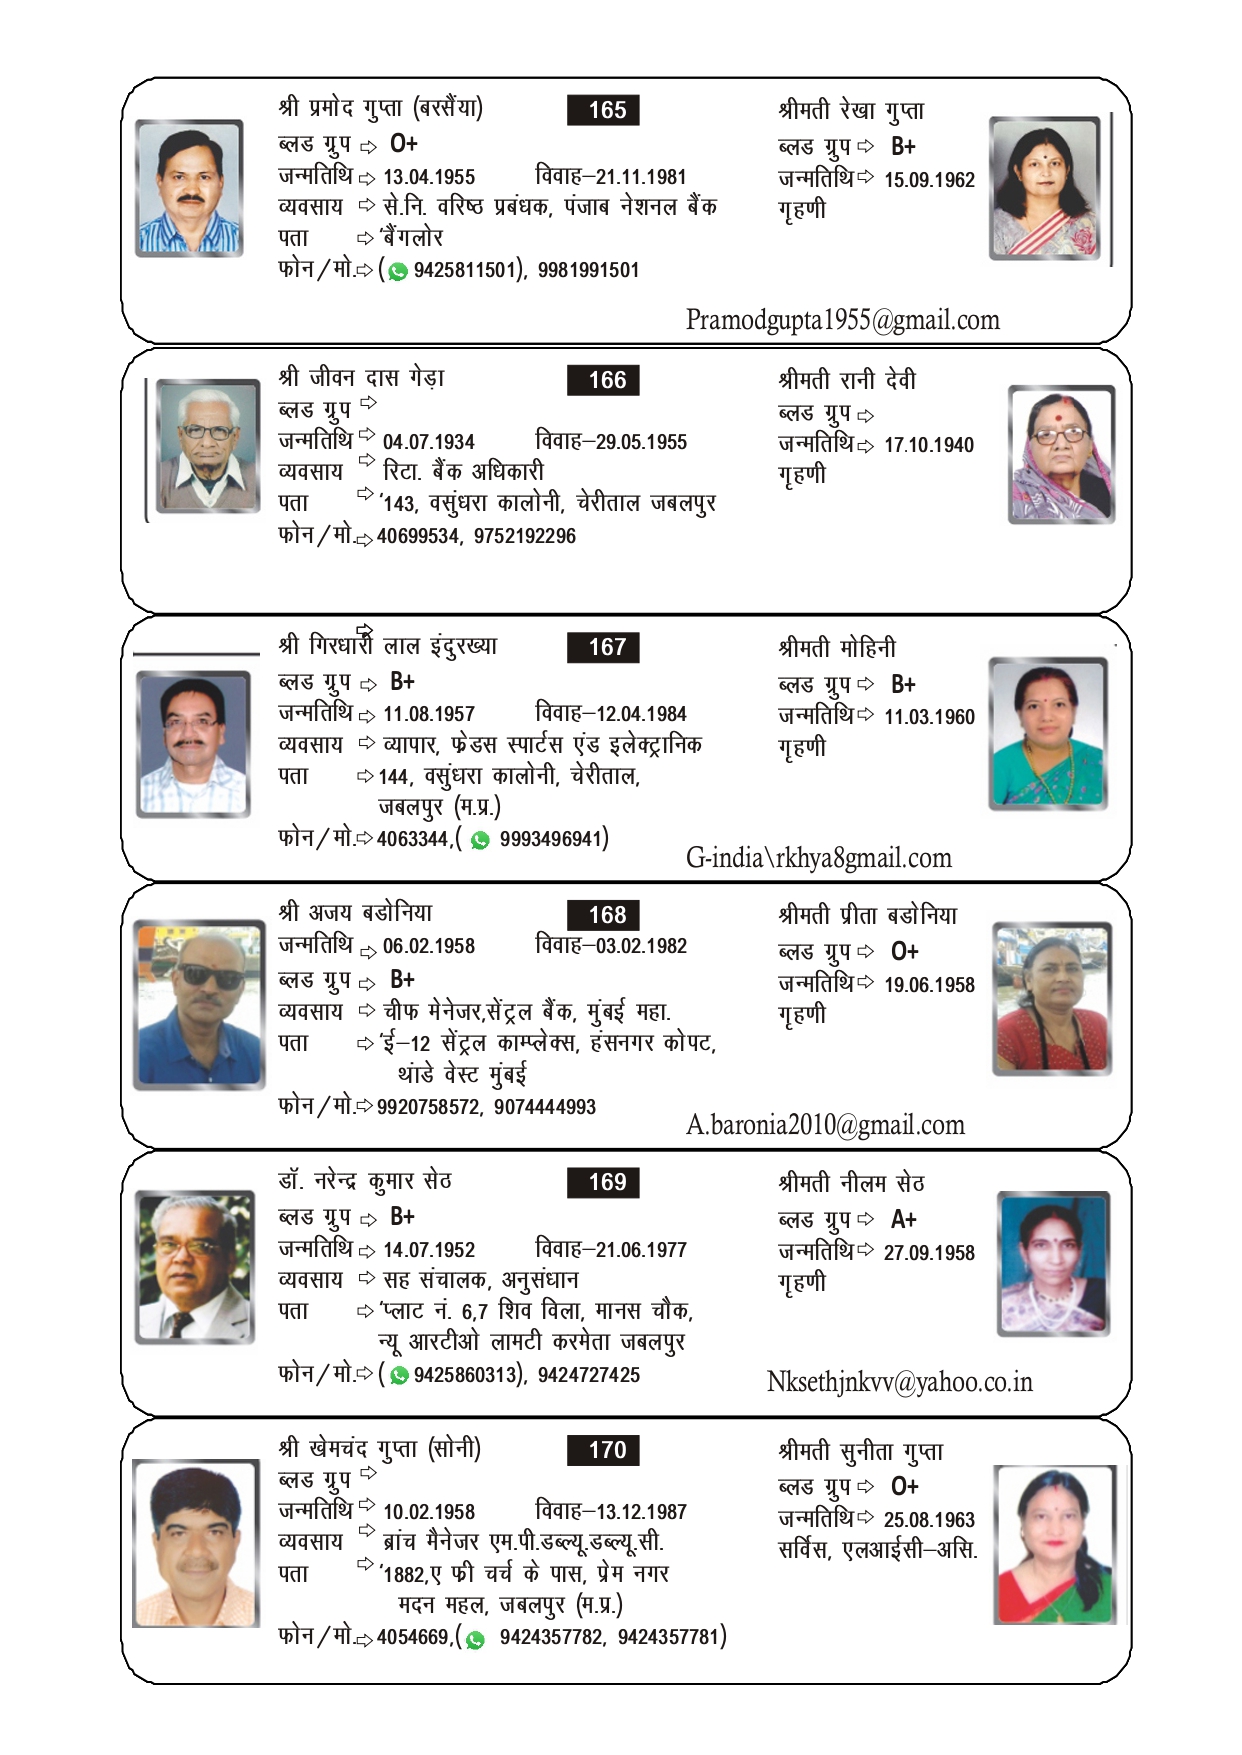 श्री प्रमोद गुप्ता (बरसैंया) 165 श्रीमती रेखा गुप्ता
ब्लड ग्रुप ⇨ O+ ब्लड ग्रुप ⇨ B+
जन्मतिथि ⇨ 13.04.1955 विवाह–21.11.1981 जन्मतिथि ⇨ 15.09.1962
व्यवसाय ⇨ से.नि. वरिष्ठ प्रबंधक, पंजाब नेशनल बैंक गृहणी
पता ⇨ ‘बैंगलोर
फोन/मो. ⇨ ( 9425811501), 9981991501
Pramodgupta1955@gmail.com
श्री जीवन दास गेड़ा 166 श्रीमती रानी देवी
ब्लड ग्रुप ⇨ ब्लड ग्रुप ⇨
जन्मतिथि ⇨ 04.07.1934 विवाह–29.05.1955 जन्मतिथि ⇨ 17.10.1940
व्यवसाय ⇨ रिटा. बैंक अधिकारी गृहणी
पता ⇨ ‘143, वसुंधरा कालोनी, चेरीताल जबलपुर
फोन/मो. ⇨ 40699534, 9752192296
श्री गिरधारी लाल इंदुरख्या 167 श्रीमती मोहिनी
ब्लड ग्रुप ⇨ B+ ब्लड ग्रुप ⇨ B+
जन्मतिथि ⇨ 11.08.1957 विवाह–12.04.1984 जन्मतिथि ⇨ 11.03.1960
व्यवसाय ⇨ व्यापार, फ्रेडस स्पार्टस एंड इलेक्ट्रानिक गृहणी
पता ⇨ 144, वसुंधरा कालोनी, चेरीताल,
जबलपुर (म.प्र.)
फोन/मो. ⇨ 4063344,( 9993496941)
G-india\rkhya8gmail.com
श्री अजय बडोनिया 168 श्रीमती प्रीता बडोनिया
जन्मतिथि ⇨ 06.02.1958 विवाह–03.02.1982 ब्लड ग्रुप ⇨ O+
ब्लड ग्रुप ⇨ B+ जन्मतिथि ⇨ 19.06.1958
व्यवसाय ⇨ चीफ मेनेजर,सेंट्रल बैंक, मुंबई महा. गृहणी
पता ⇨ ‘ई–12 सेंट्रल काम्प्लेक्स, हंसनगर कोपट,
थांडे वेस्ट मुंबई
फोन/मो. ⇨ 9920758572, 9074444993
A.baronia2010@gmail.com
डॉ. नरेन्द्र कुमार सेठ 169 श्रीमती नीलम सेठ
ब्लड ग्रुप ⇨ B+ ब्लड ग्रुप ⇨ A+
जन्मतिथि ⇨ 14.07.1952 विवाह–21.06.1977 जन्मतिथि ⇨ 27.09.1958
व्यवसाय ⇨ सह संचालक, अनुसंधान गृहणी
पता ⇨ ‘प्लाट नं. 6,7 शिव विला, मानस चौक,
न्यू आरटीओ लामटी करमेता जबलपुर
फोन/मो. ⇨ ( 9425860313), 9424727425
Nksethjnkvv@yahoo.co.in
श्री खेमचंद गुप्ता (सोनी) 170 श्रीमती सुनीता गुप्ता
ब्लड ग्रुप ⇨ ब्लड ग्रुप ⇨ O+
जन्मतिथि ⇨ 10.02.1958 विवाह–13.12.1987 जन्मतिथि ⇨ 25.08.1963
व्यवसाय ⇨ ब्रांच मैनेजर एम.पी.डब्ल्यू.डब्ल्यू.सी. सर्विस, एलआईसी–असि.
पता ⇨ ‘1882,ए फ्री चर्च के पास, प्रेम नगर
मदन महल, जबलपुर (म.प्र.)
फोन/मो. ⇨ 4054669,( 9424357782, 9424357781)